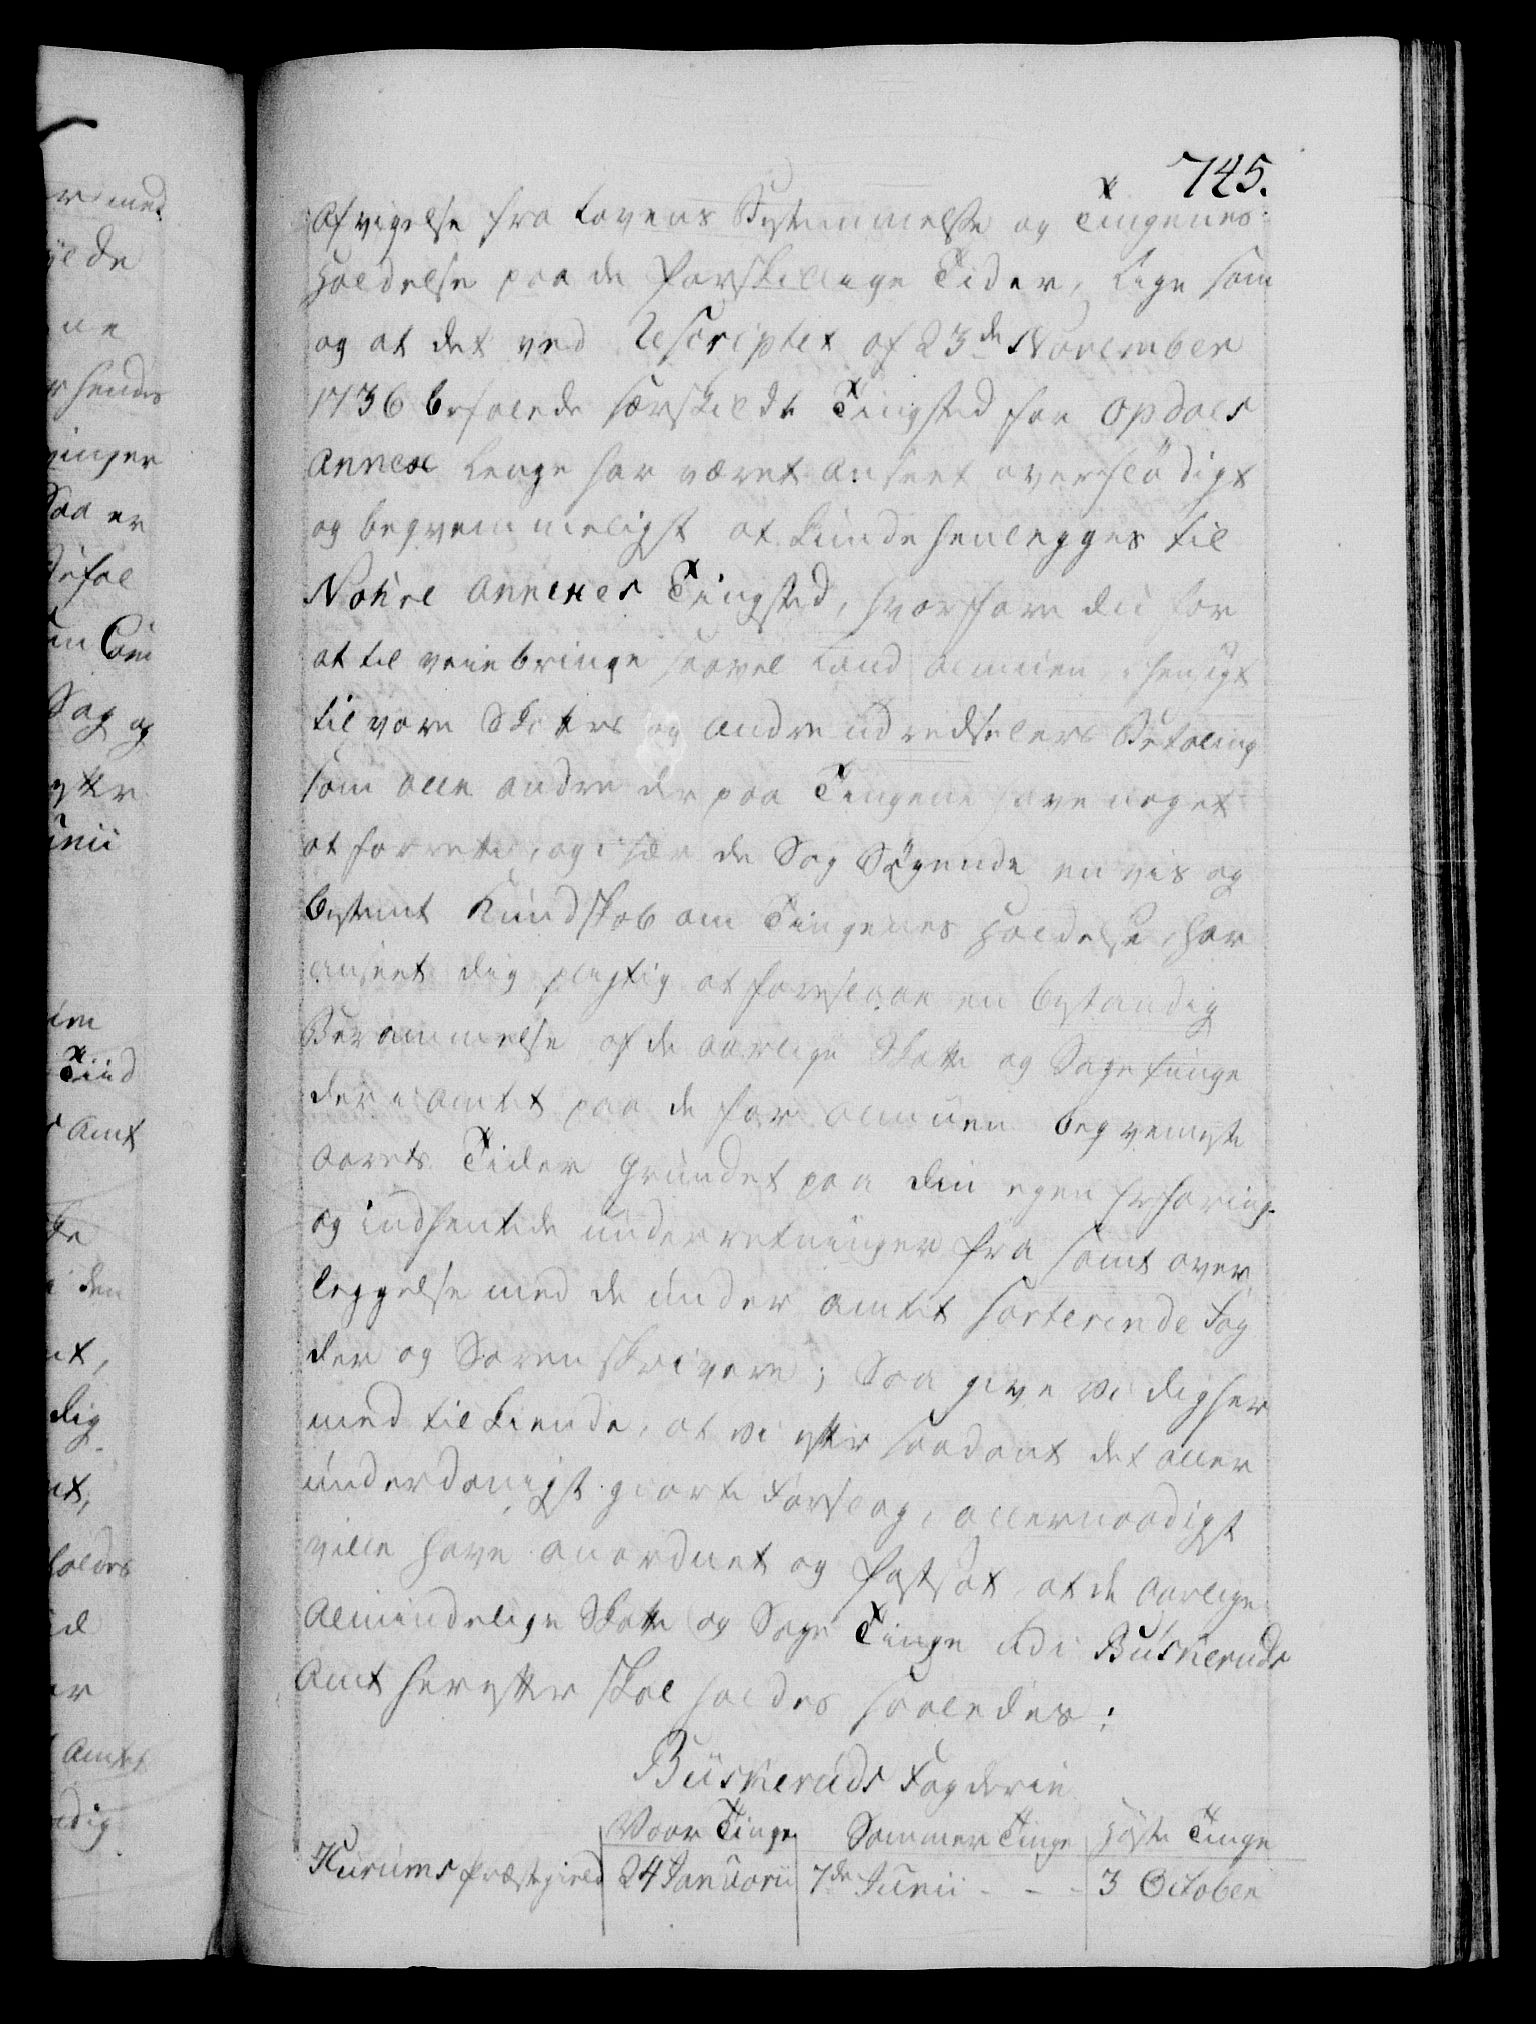 745.
Afvigelse fra Lovens Bestemmelse og Tingenes
Holdelse paa de forskellige Tider, lige som
og at det ved Rescriptet af 23de November
1736 befalede særskildte Tingsted for Opdals
Annex lenge har været anseet overflödigt
og beqvemmeligst at kunde henlegges til
Nohre Annexes Tingsted, hvorfore du for
at til veiebringe saavel Land Almuen i hensigt
til vore Skatters og andre udredselers Betaling
som alle andre der paa Tingene have noget
at forrette, og i sær de Sag Sögende en vis og
bestemt Kundskab om Tingenes Holdelse, har
anseet dig pligtig at foreslaae en bestandig
Berammelse af de aarlige Skatte og Sage tinge
der i Amtet paa de for Almuen beqvemste
Aarets Tider grundet paa din egen Erfaring
og indhentede underretninger fra samt over
leggelse med de under Amtet sorterende Fog
der og Sorenskrivere; Saa give Vi dig her
med tilkiende, at vi efter saadant det aller
underdanigst giorte Forslag, allernaadigst
ville have anordnet og fastsat, at de aarlige
Almindelige Skatte og Sage Tinge udi Buskeruds
Amt herefter skal holdes saaledes:
Buskeruds Fogderie
Vaar Tinge Sommer Tinge Höste Tinge
Hurums Præstegield 24 Januarii 7de Junii - - - 3 October